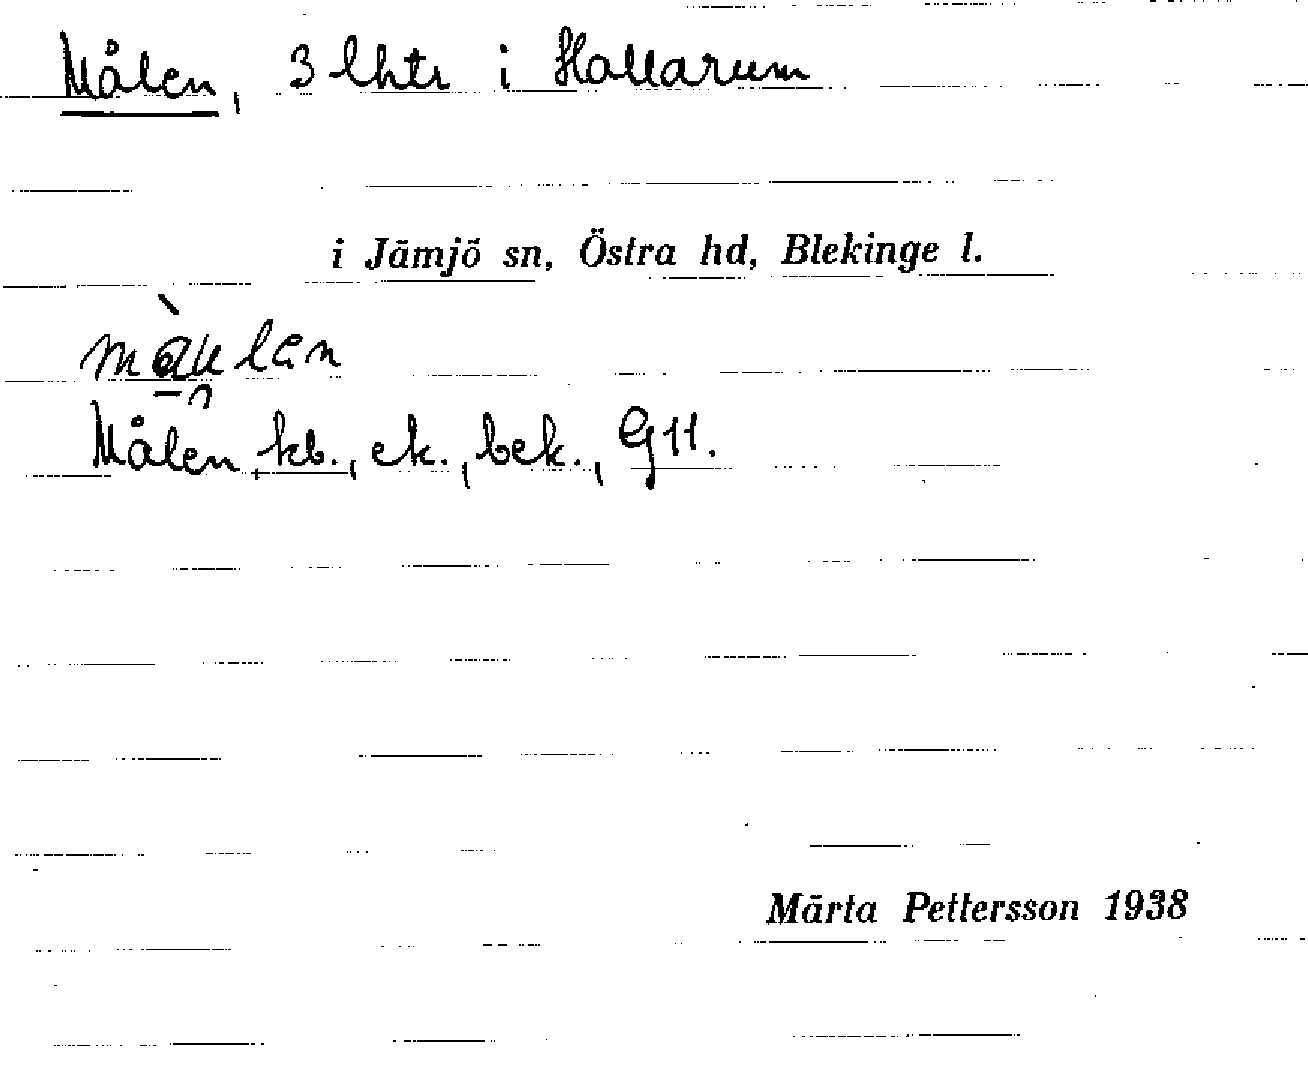 Målen, 3 lhtr i Hallarum
i Jämjö sn, Östra hd, Blekinge l.
màu̯len
Målen, kb., ek., bek., G11.
Märta Pettersson 1938